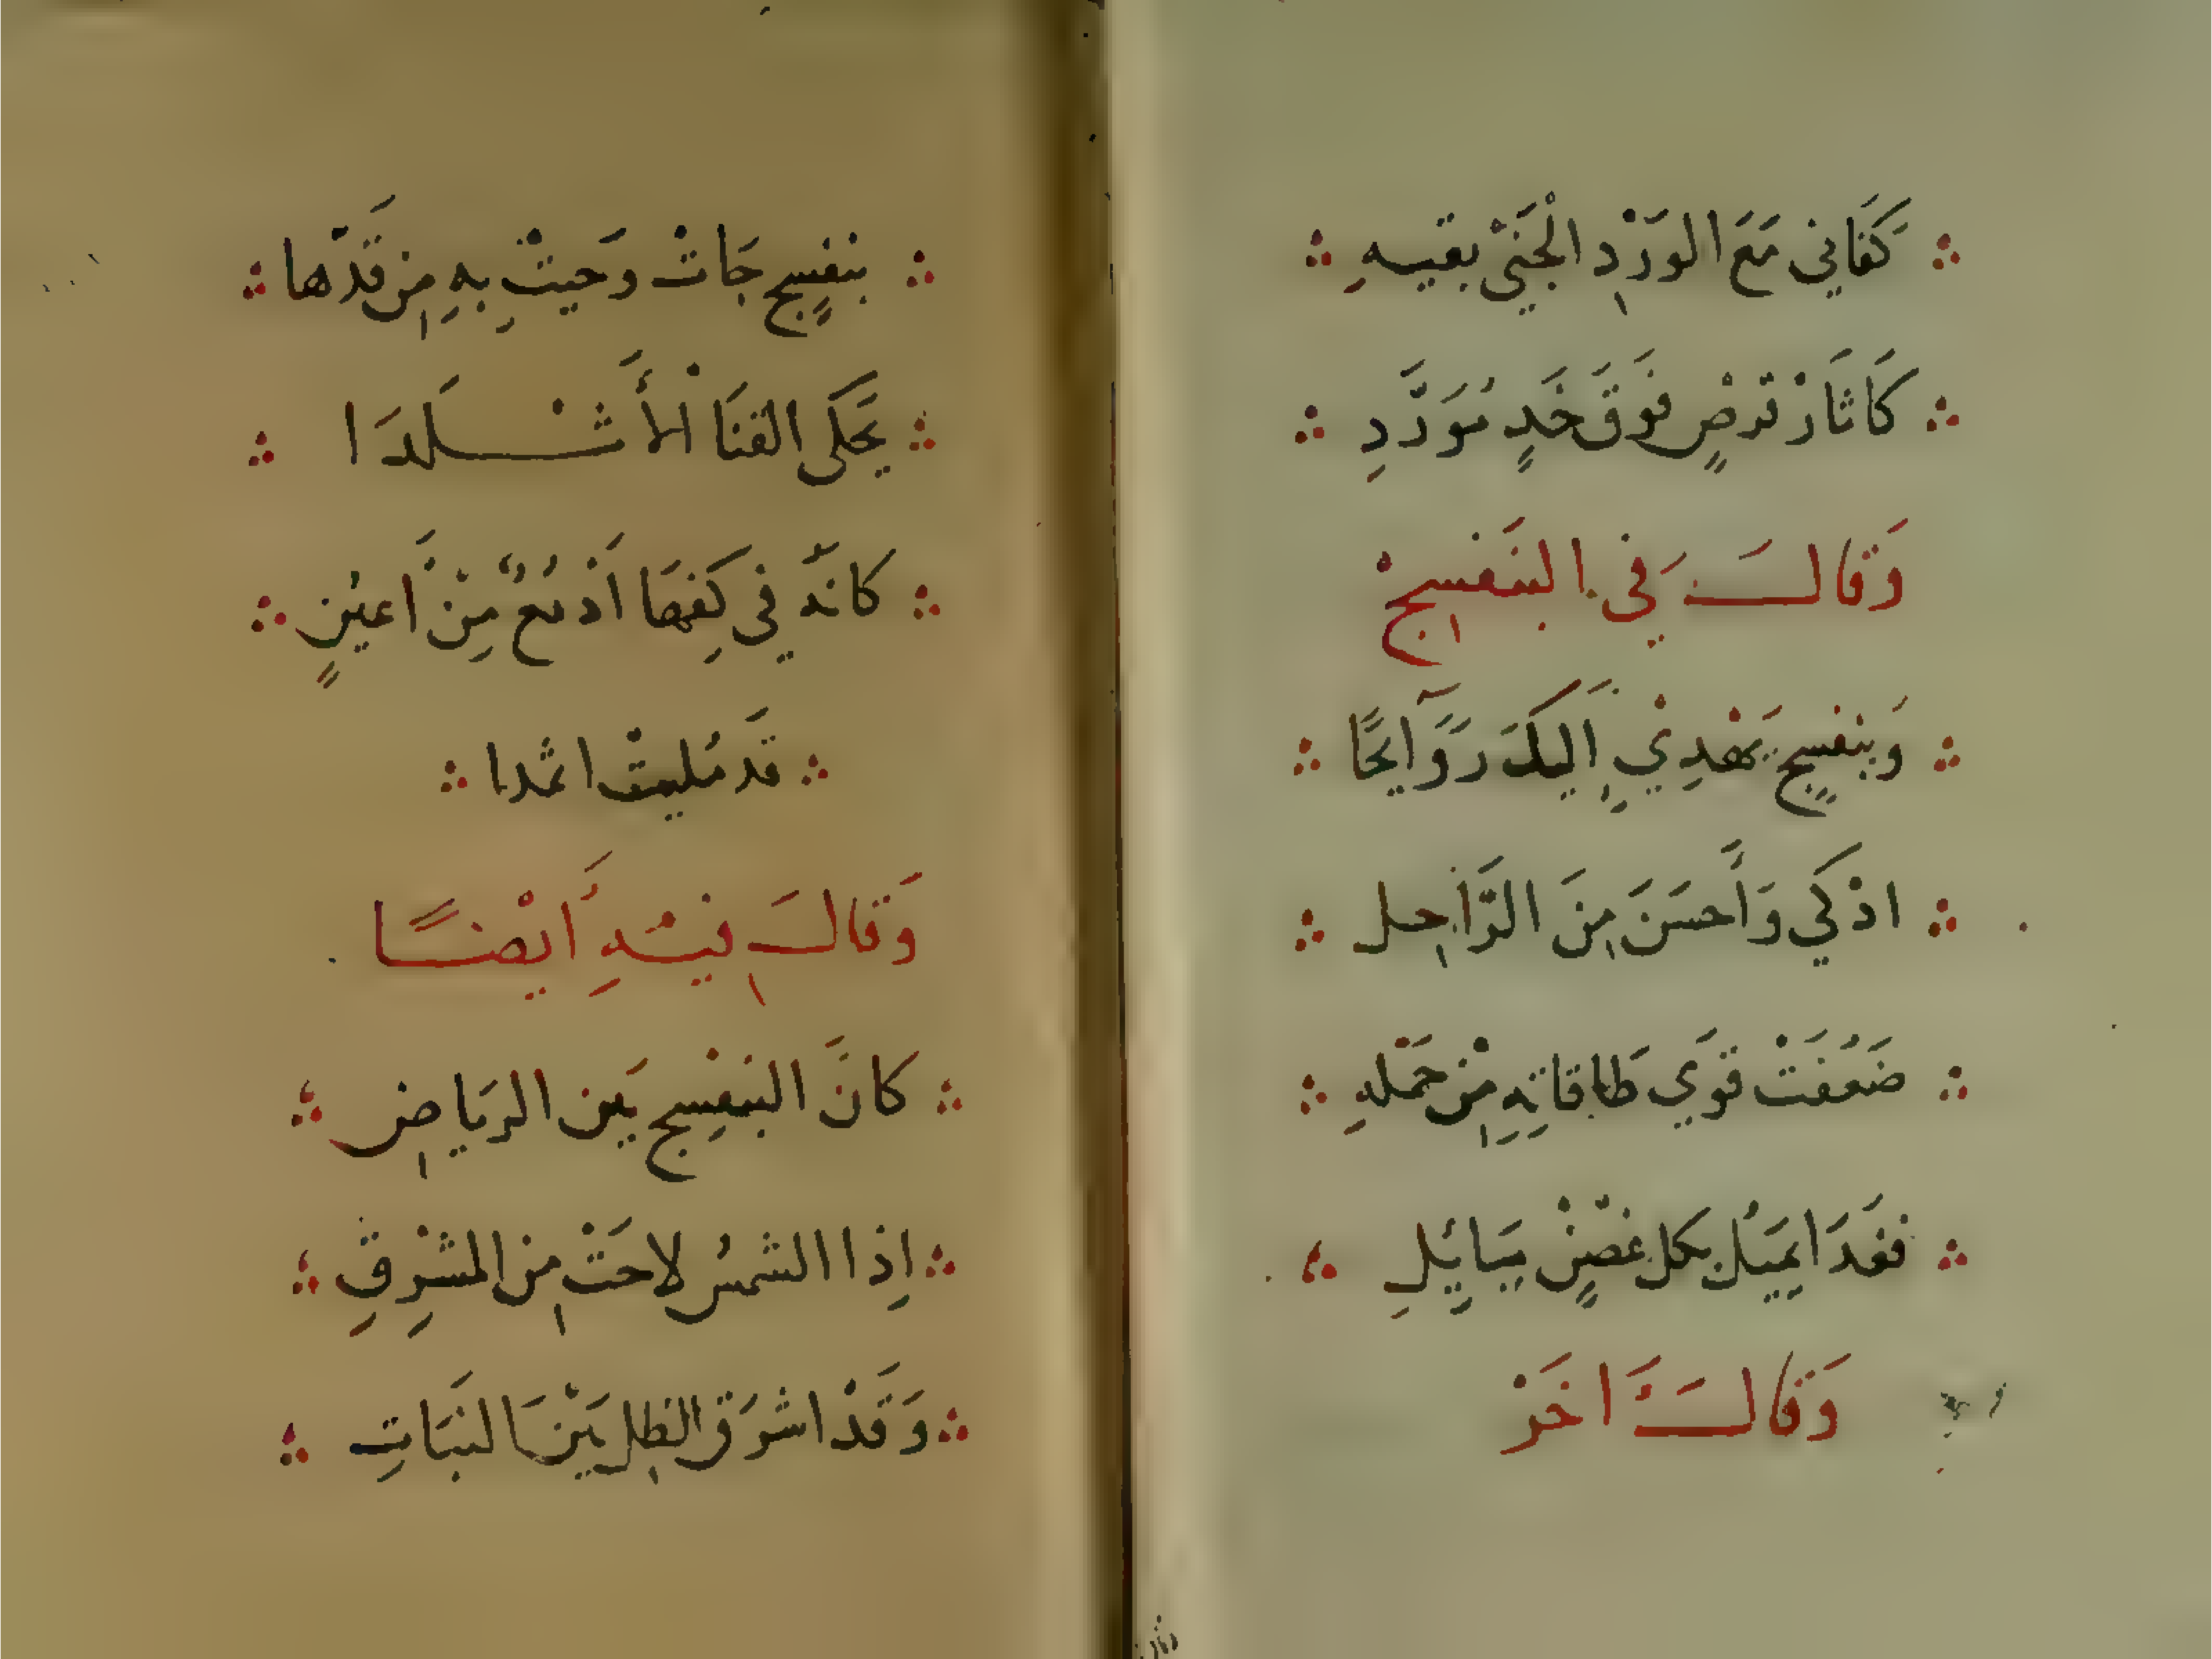 كَفَانِي مَعَ الوَرْدِ الْجَنِيّ بقيــهِ
كَاثَارْ قرصٍ فَوقَ خَدٍ مُوَرَّدِ
وَقَالَ فِي البَنَفسجْ
وَبنفسجٍ يَهْدِيْ اِلَيكَ رَوَآيحًا
اذْكَي وَأَحسَنَ مِنَ الرَّاحِل
ضَعُفَتْ قوَي طَاقاتِهِ مِنْ حَمَلهِ
فغَدَا يميَلُ بكل غصْنٍ مَيَايُلِ
وَقَالَ اَخَرْ
بنفسجٍ جَاتْ وَحيتْ بِهِ مِن قَدّها
يَحَكى القنَا الأَشْــلَدَا
كانّهَ في كَفِهَا اَدمُعٌ مِنْ أَعينٍ
قَد مُليتْ اثمدا
وَقَالَ فيــهِ أَيْضــًا
كانَّ البَنفْسِج بَين الريَاضِ
اِذا الشمسُ لاحَتْ مِن المشْرِقِ
وَقَدْ اشرَق الطلِ بَيْن النبَاتِ